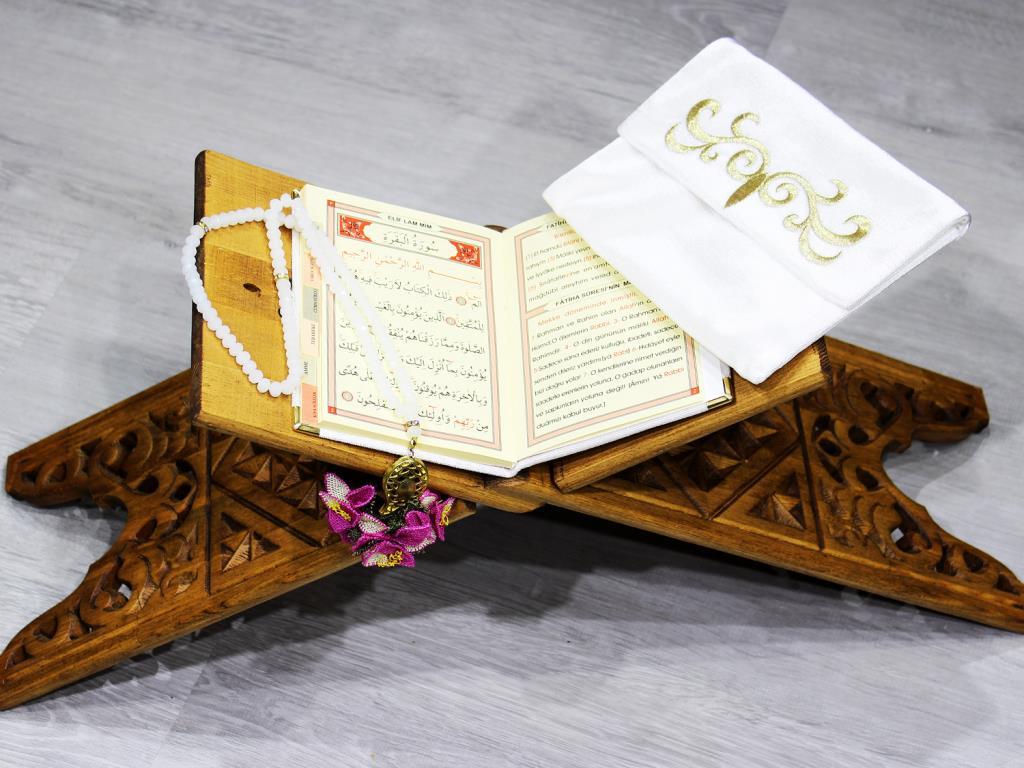 ELİF LAM MİM
سُورَةُ الْبَقَرَةِ
بِسْمِ اللهِ الرَّحْمٰنِ الرَّحِيمِ
الٓمٓ ذٰلِكَ الْكِتَابُ لَا رَيْبَ فِيهِ
لِلْمُتَّقِينَ الَّذِينَ يُؤْمِنُونَ بِالْغَيْبِ
الصَّلٰوةَ وَمِمَّا رَزَقْنَاهُمْ يُنْفِقُونَ
يُؤْمِنُونَ بِمَا اُنْزِلَ اِلَيْكَ قَبْلِكَ
وَبِالْاٰخِرَةِ هُمْ يُوقِنُونَ هُدًى
مِنْ رَبِّهِمْ وَاُولٰئِكَ الْمُفْلِحُونَ
FATİHA
(1) El hamdü
rahıym (3) Mâliki
ve iyyâke nesteıyn (5)
(6) Sırâtallezîne en'amte
mağdûbi aleyhim
FATİHA SÛRESİ'NİN M
Mekke döneminde inmiştir.
1- Rahman ve Rahim olan Allah'ın
Hamd O âlemlerin Rabbi, 3- O Rahman
Rahimdir. 4- O din gününün mâliki Allah
5- Sadece sana ederiz kulluğu, ibadeti; sadece
senden dileriz yardımı(ya Rab)! 6- Hidayet eyle
bizi doğru yola! 7- O kendilerine nimet verdiğin
saadete erenlerin yoluna. O gadap olunanların
ve sapkınların yoluna değil! (Âmin! Yâ Rabbi
duâmızı kabul buyur.)